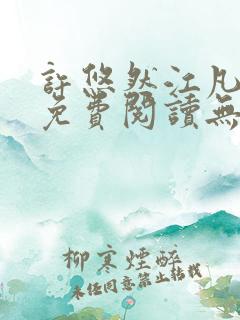 許悠然江凡
免費閱讀無
柳寒煙醉
未經同意禁止轉載